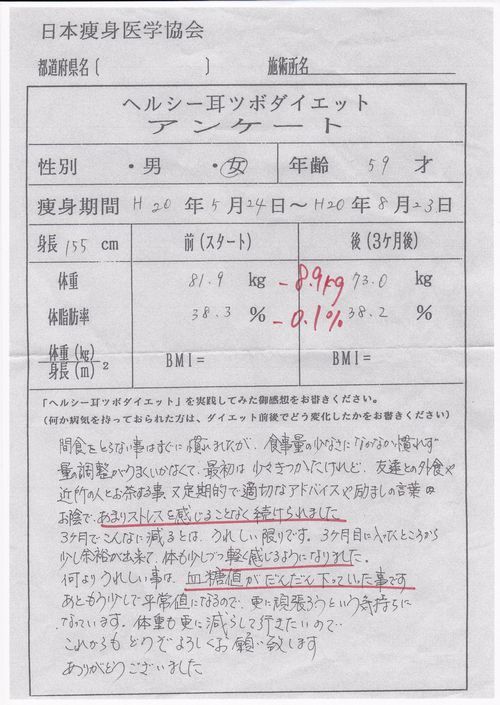 日本痩身医学協会
都道府県名( ) 施術所名
ヘルシー耳ツボダイエット
アンケート
性別 ・男 ・女 年齢 59 才
痩身期間 H20年5月24日~H20年8月23日
身長155cm 前(スタート) 後(3ケ月後)
体重 81.9 kg -8.9kg 73.0 kg
体脂肪率 38.3 % -0.1% 38.2 %
体重(kg)
身長(m) 2 BMI= BMI=
「ヘルシー耳ツボダイエット」を実践してみた御感想をお書きください。
(何か病気を持っておられた方は、ダイエット前後でどう変化したかをお書きください)
間食をとらない事はすぐに慣れましたが、食事量の少なさになかなか慣れず
量の調整がうまくいかなくて、最初は少々きつかったけれど、友達との外食や
近所の人とお茶する事 又定期的で適切なアドバイスや励ましの言葉の
お陰で、あまりストレスを感じることなく続けられました
3ケ月でこんなに減るとは、うれしい限りです。3ケ月目に入ったところから
少し余裕が出来て、体も少しづつ軽く感じるようになりました。
何よりうれしい事は、血糖値がだんだん下っていった事です
あともう少しで平常値になるので、更に頑張ろうという気持ちに
なっています。体重も更に減らして行きたいので‥
これからも どうぞよろしくお願い致します
ありがとうございました